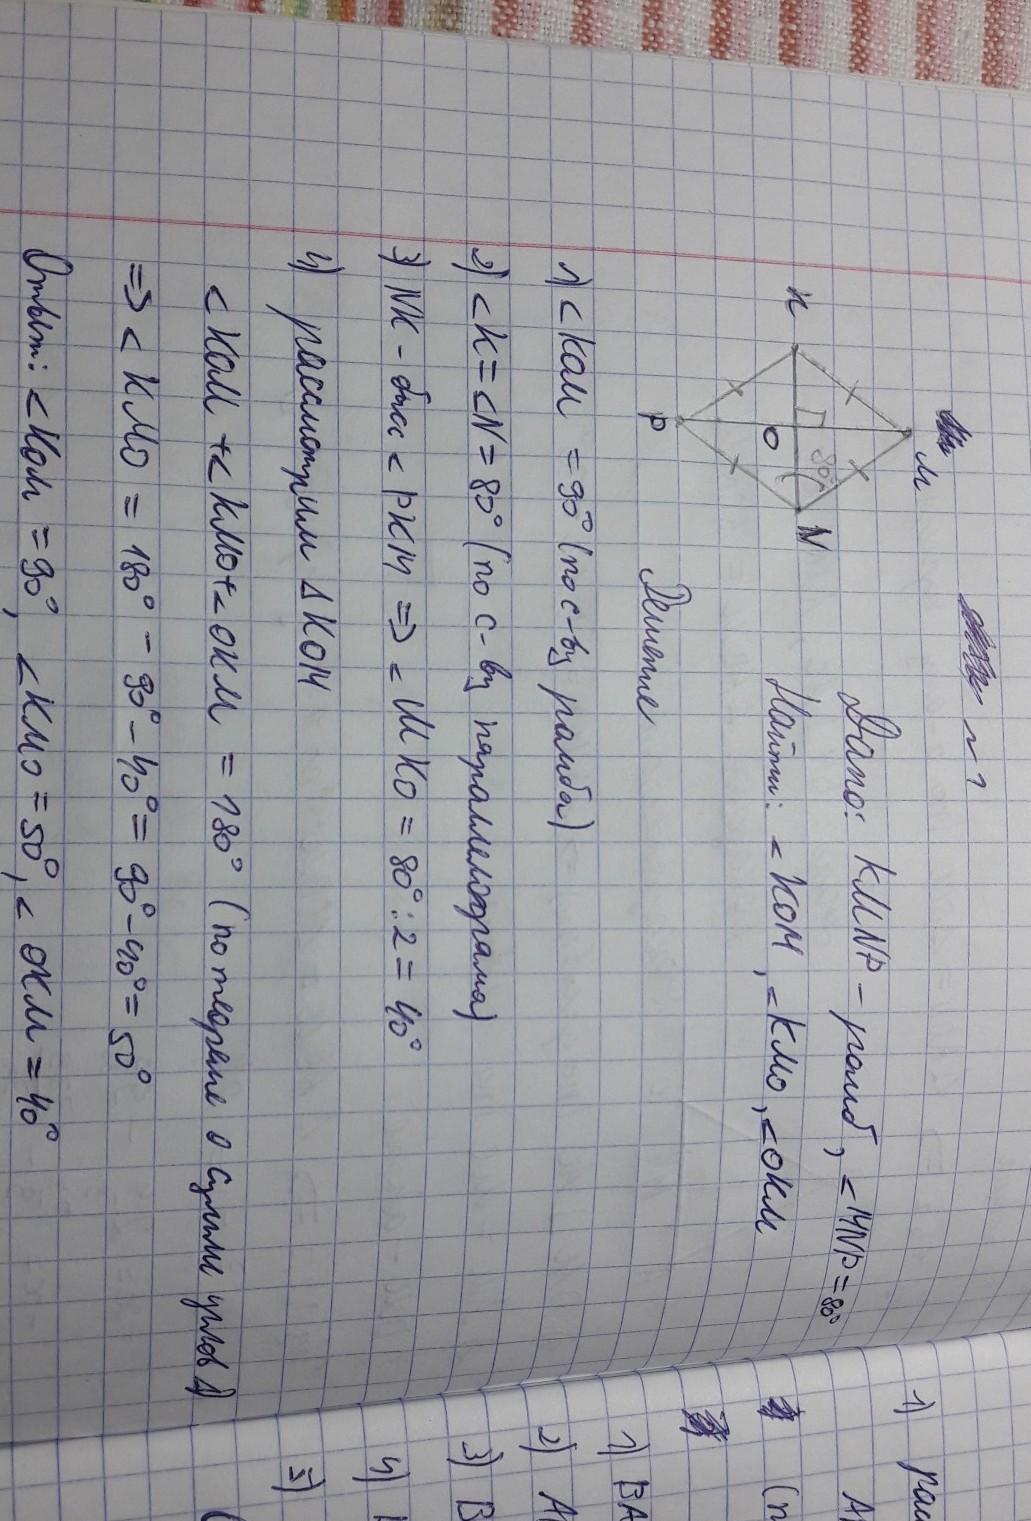 ~ 1
Дано: KMNP - ромб, <MNP = 80°
Найти: <KOM, <KMO, <OKM
K
M
N
P
O
80°
Решение
1) <KOM = 90° (по с-ву ромба)
2) <K = <N = 80° (по с-ву параллелограма)
3) NK - бисс < PKM => < MKO = 80° : 2 = 40°
4) рассмотрим Δ KOM
<KOM + <KMO + <OKM = 180° (по теореме о сумме углов Δ)
=> < KMO = 180° - 90° - 40° = 90° - 40° = 50°
Ответ: <KOM = 90°, <KMO = 50°, < OKM = 40°
1)
(п
1) BA
2)
3) B
4)
5)